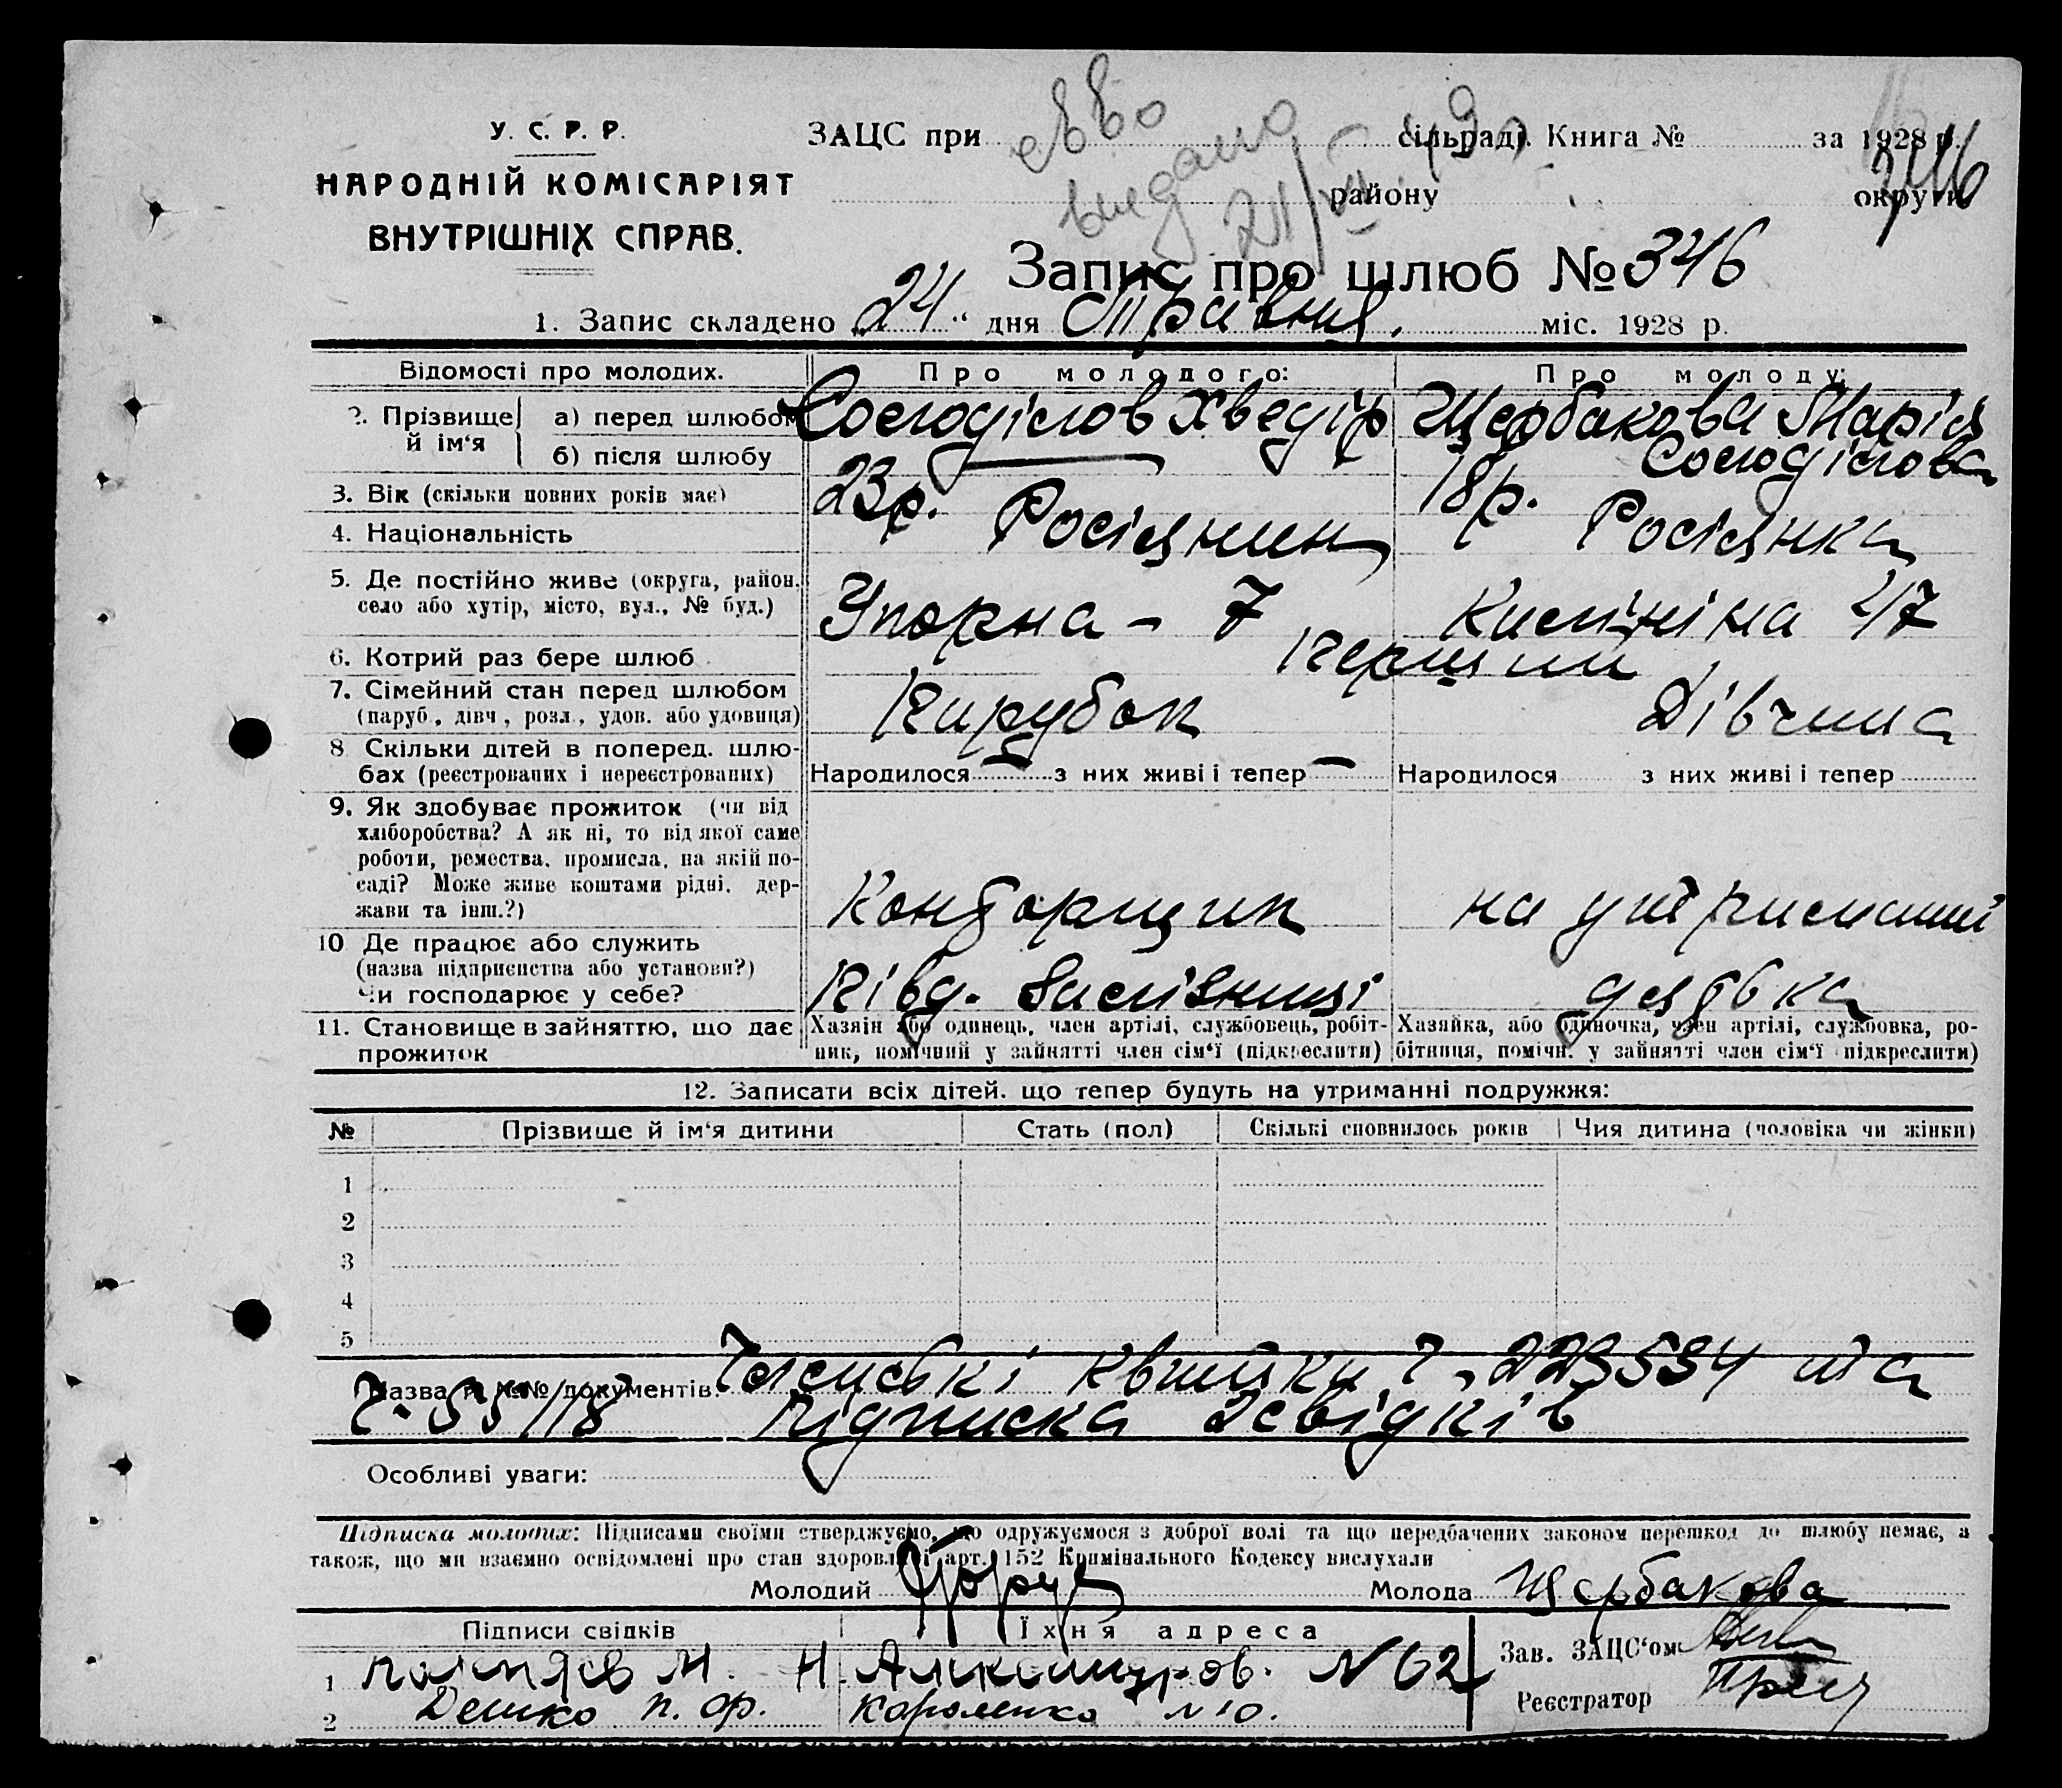 У. С. Р. Р.
НАРОДНІЙ КОМІСАРІЯТ
ВНУТРІШНІХ СПРАВ.
ЗАЦС при сільраді. Книга № за 1928 р.
району округи
видано
Запис про шлюб № 346
1. Запис складено „24“ дня Травня міс. 1928 р.
Відомості про молодих. Про молодого: Про молоду:
2. Прізвище й ім‘я а) перед шлюбом Соєгоділов Хведір Щербакова Марія
б) після шлюбу Соєгоділова
3. Вік (скільки повних років має) 23 р. 18 р.
4. Національність Росіянин Росіянка
5. Де постійно живе (округа, район. село або хутір, місто, вул., № буд.) Упорна - 7
6. Котрий раз бере шлюб Перший
7. Сімейний стан перед шлюбом (паруб., дівч., розл., удов. або удовиця) Парубок Дівчина
8 Скільки дітей в поперед. шлюбах (реєстрованих і нереєстрованих) Народилося — з них живі і тепер — Народилося з них живі і тепер
9. Як здобуває прожиток (чи від
хліборобства? А як ні, то від якої саме
роботи, ремества, промисла, на якій по-
саді? Може живе коштами рідні, дер-
жави та інш.?) Конторщик на утриманні
10 Де працює або служить
(назва підприємства або установи?)
Чи господарює у себе? Півд. Залізниці дядька
11. Становище в зайняттю, що дає прожиток
Хазяїн або одинець, член артілі, службовець, робіт-
ник, помічний у зайнятті член сім‘ї (підкреслити)
Хазяйка, або одиночка, член артілі, службовка, ро-
бітниця, помічн. у зайнятті член сім‘ї (підкреслити)
12. Записати всіх дітей. що тепер будуть на утриманні подружжя:
№ Прізвище й ім‘я дитини Стать (пол) Скількі сповнилось років Чия дитина (чоловіка чи жінки)
1
2
3
4
5
Назва й №№ документів: квитки 223534 та
підписка свідків
Особливі уваги:
Підписка молодих: Підписами своїми стверджуємо, що одружуємося з доброї волі та що передбачених законом перешкод до шлюбу немає, а
також, що ми взаємно освідомлені про стан здоровля і арт. 152 Кримінального Кодексу вислухали
Молодий Молода Щербакова
Підписи свідків Їхня адреса Зав. ЗАЦС‘ом
1 № 62
2 Дешко П. Ф. Короленко № 10. Реєстратор